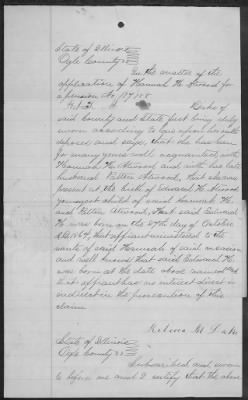 State of Illinois
Ogle County ss
In the matter of the
application of Hannah H. Atwood for
a pension No. 187,
said County and State first being duly
sworn according to law upon her oath
deposes and says that she has been
for many years well acquainted with
Hannah H. Atwood and with her late
husband Atwood, that she was
present at the birth of Edward H. Atwood
youngest child of said Hannah H.
and Atwood, that said Edward
H. was born on the 27th day of October
A.D. 1864, that affiant ministered to the
wants of said Hannah on said occasion
and well knows that said Edward H.
was born at the date above named and
that affiant has no interest direct or
indirect in the prosecution of this
claim.
Rebecca M.
State of Illinois
Ogle County ss
Subscribed and sworn
to before me and I certify that the above